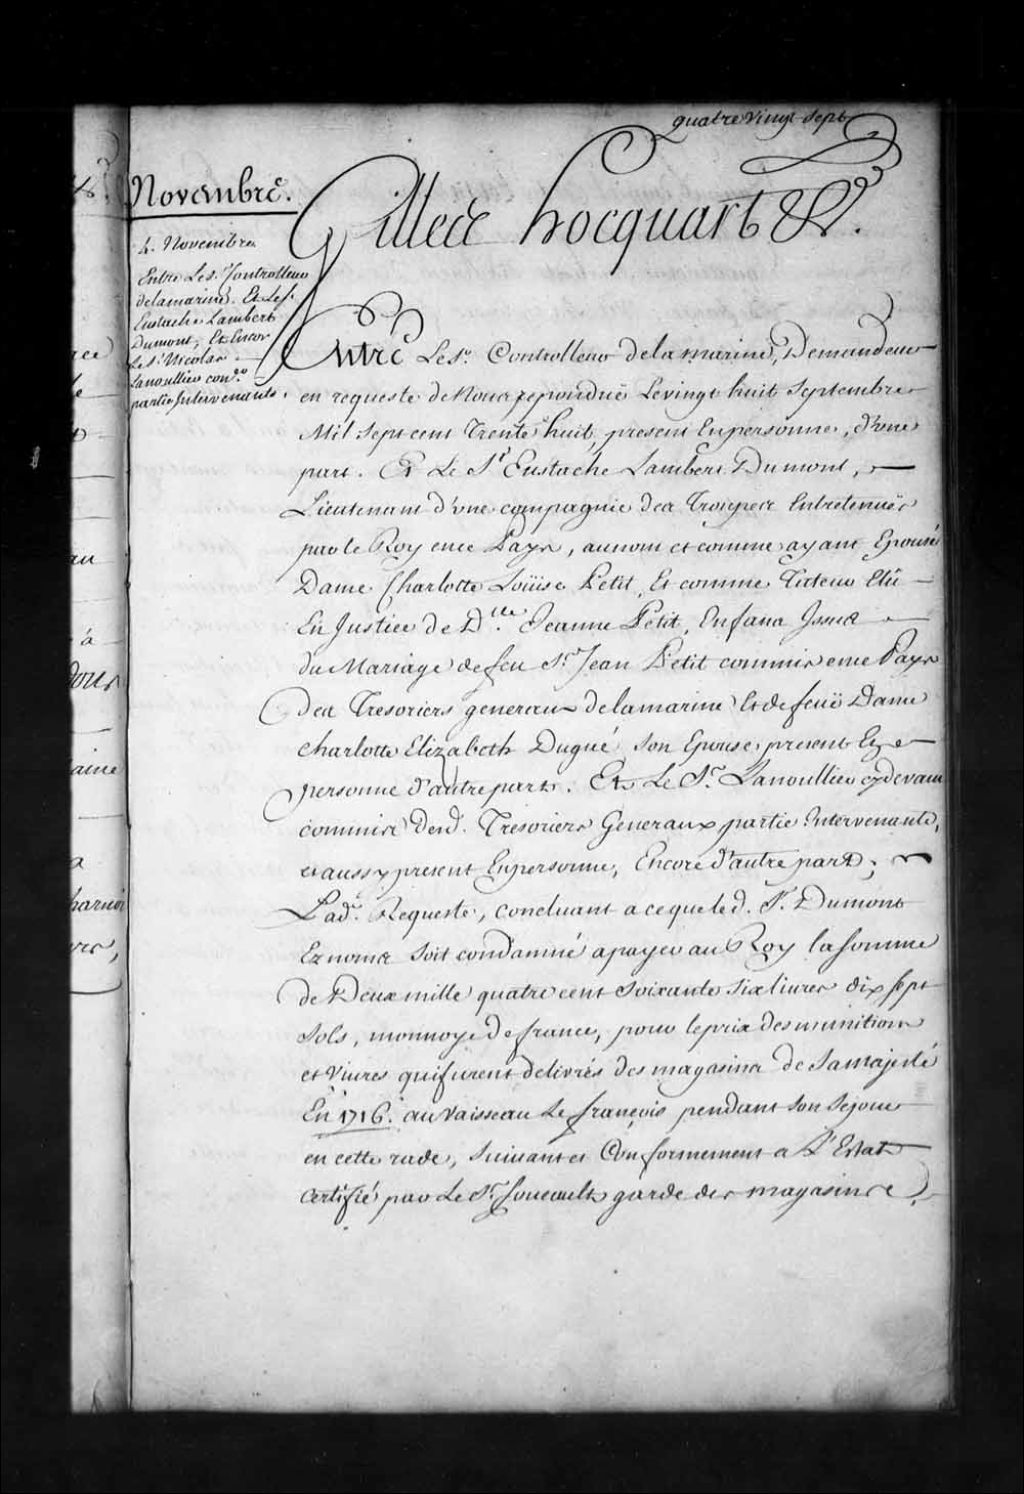 quatre Vingt sept
Novembre.
Gilles hocquart &c.
4. Novembre
Entre Le s. Controlleur
de la marine. Et Le s.
Eustache Lambert
Dumont, Et Encor
Le s. Nicolas
Lanoullier con.er
partie Intervenante.
Entre Le sr. Controlleur de la marine, Demandeur
en requeste de Nous repondüe Le vingt huit Septembre
Mil sept cent trente huit, present En personne, d'vne
part. Et Le Sr. Eustache Lambert Dumont,
Lieutenant d'vne compagnie des Trouppes Entretenües
par le Roy en ce Pays, au nom et comme ayant Epousé
Dame Charlotte Loüise Petit, Et comme Tuteur Elû
En Justice de D.lle Jeanne Petit, Enfans Issus
du Mariage de feu Sr. Jean Petit commis en ce Pays
des Tresoriers generaux de la marine Et de feüe Dame
Charlotte Elizabeth Dugué son Epouse, present En
personne d'autre part. Et Le Sr. Lanoullier cy devant
commis desd. Tresoriers Generaux partie Intervenante,
et aussy present En personne, Encore d'autre part;
Lad.e Requeste, concluant a ce que led. Sr. Dumont
Ez noms soit condamné a payer au Roy la somme
de Deux mille quatre cent soixante six livres dix sept
sols, monnoye de france, pour le prix des munitions
et Vivres qui furent delivrés des magasins de Sa majesté
En 1716. au Vaisseau Le françois pendant son sejour
en cette rade, suivant et Conformement a L'Estat
certifié par Le Sr. foucault garde des magasins